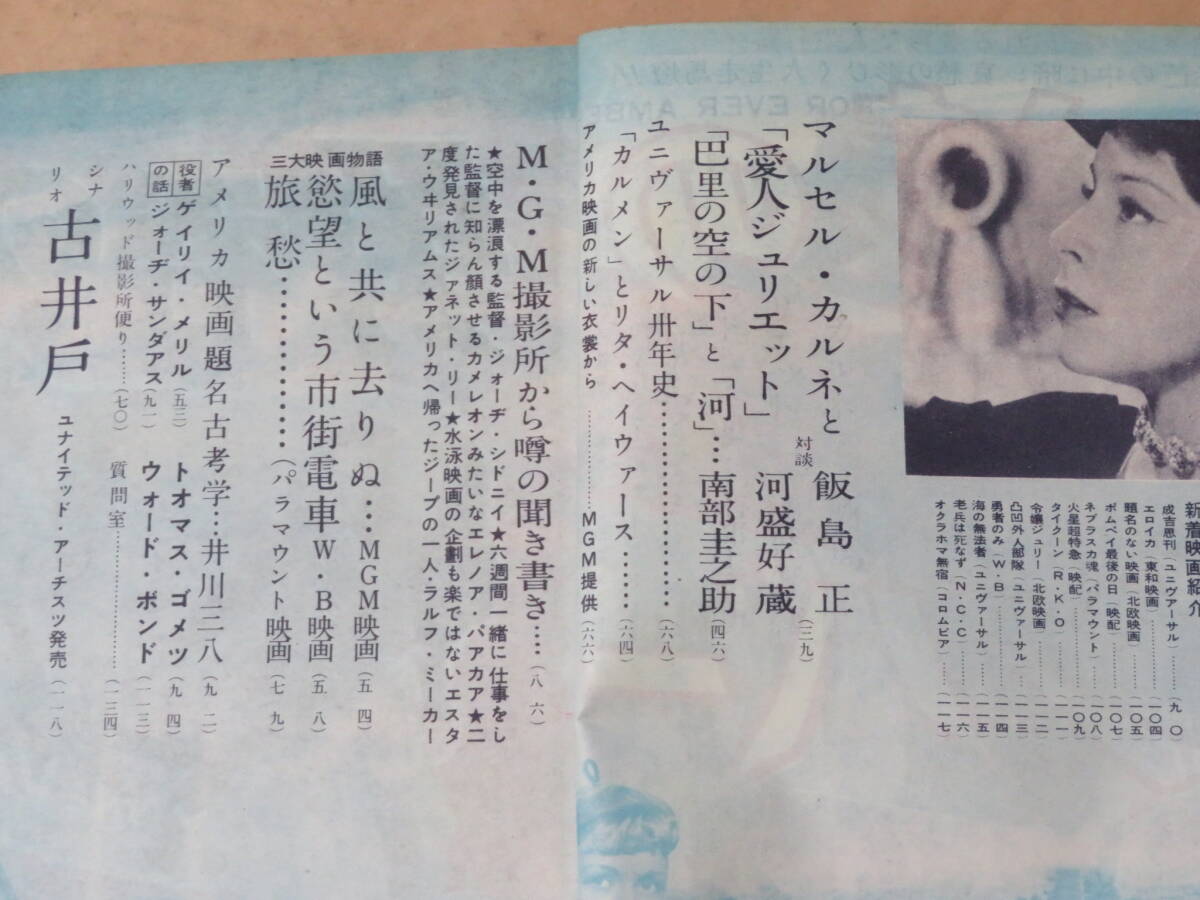 新着映画紹介
成吉思刊（ユニヴアーサル）……九〇
エロイカ（東和映画）……一〇四
題名のない映画（北欧映画）……一〇五
ポムペイ最後の日（映配）……一〇七
ネブラスカ魂（パラマウント）……一〇八
火星超特急（映配）……一〇九
タイクーン（R・K・O）……一一一
令嬢ジュリー（北欧映画）……一一二
凸凹外人部隊（ユニヴァーサル）…一一三
勇者のみ（W・B）……一一四
海の無法者（ユニヴァーサル）……一一五
老兵は死なず（N・C・C）……一一六
オクラホマ無宿（コロムビア）……一一七
マルセル・カルネと 飯島 正
「愛人ジュリエット」 対談 河盛好蔵（三九）
「巴里の空の下」と「河」…南部圭之助（四六）
ユニヴァーサル卅年史……（六八）
「カルメン」とリタ・ヘイウァース……（六四）
アメリカ映画の新しい衣裳から……MGM提供（六六）
M・G・M撮影所から噂の聞き書き…（八六）
★空中を漂浪する監督・ジォーヂ・シドニイ★六週間一緒に仕事をし
た監督に知らん顔させるカメレオンみたいなエレノア・パアカア★二
度発見されたジァネット・リー★水泳映画の企劃も楽ではないエスタ
ア・ウヰリアムス★アメリカへ帰ったジープの一人・ラルフ・ミーカー
三大映画物語
風と共に去りぬ…MGM映画（五四）
慾望という市街電車W・B映画（五八）
旅愁……（パラマウント映画（七九）
アメリカ映画題名古考学…井川三八（九二）
役者の話
ゲイリイ・メリル（五三） トオマス・ゴメツ（九四）
ジォーヂ・サンダアス（九一） ウォード・ボンド（一一三）
ハリウッド撮影所便り……（七〇） 質問室……（一三四）
シナリオ 古井戸 ユナイテッド・アーチスツ発売（一一八）
FOR EVER AMBER